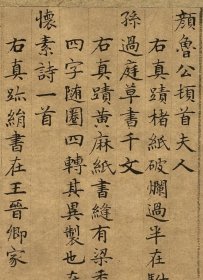 顏魯公頓首夫人
右真蹟楮紙破爛過半在駙
孫過庭草書千文
右真蹟黄麻紙書縫有梁秀
四字随圈四轉具異製也在
懷素詩一首
右真跡絹書在王晉卿家